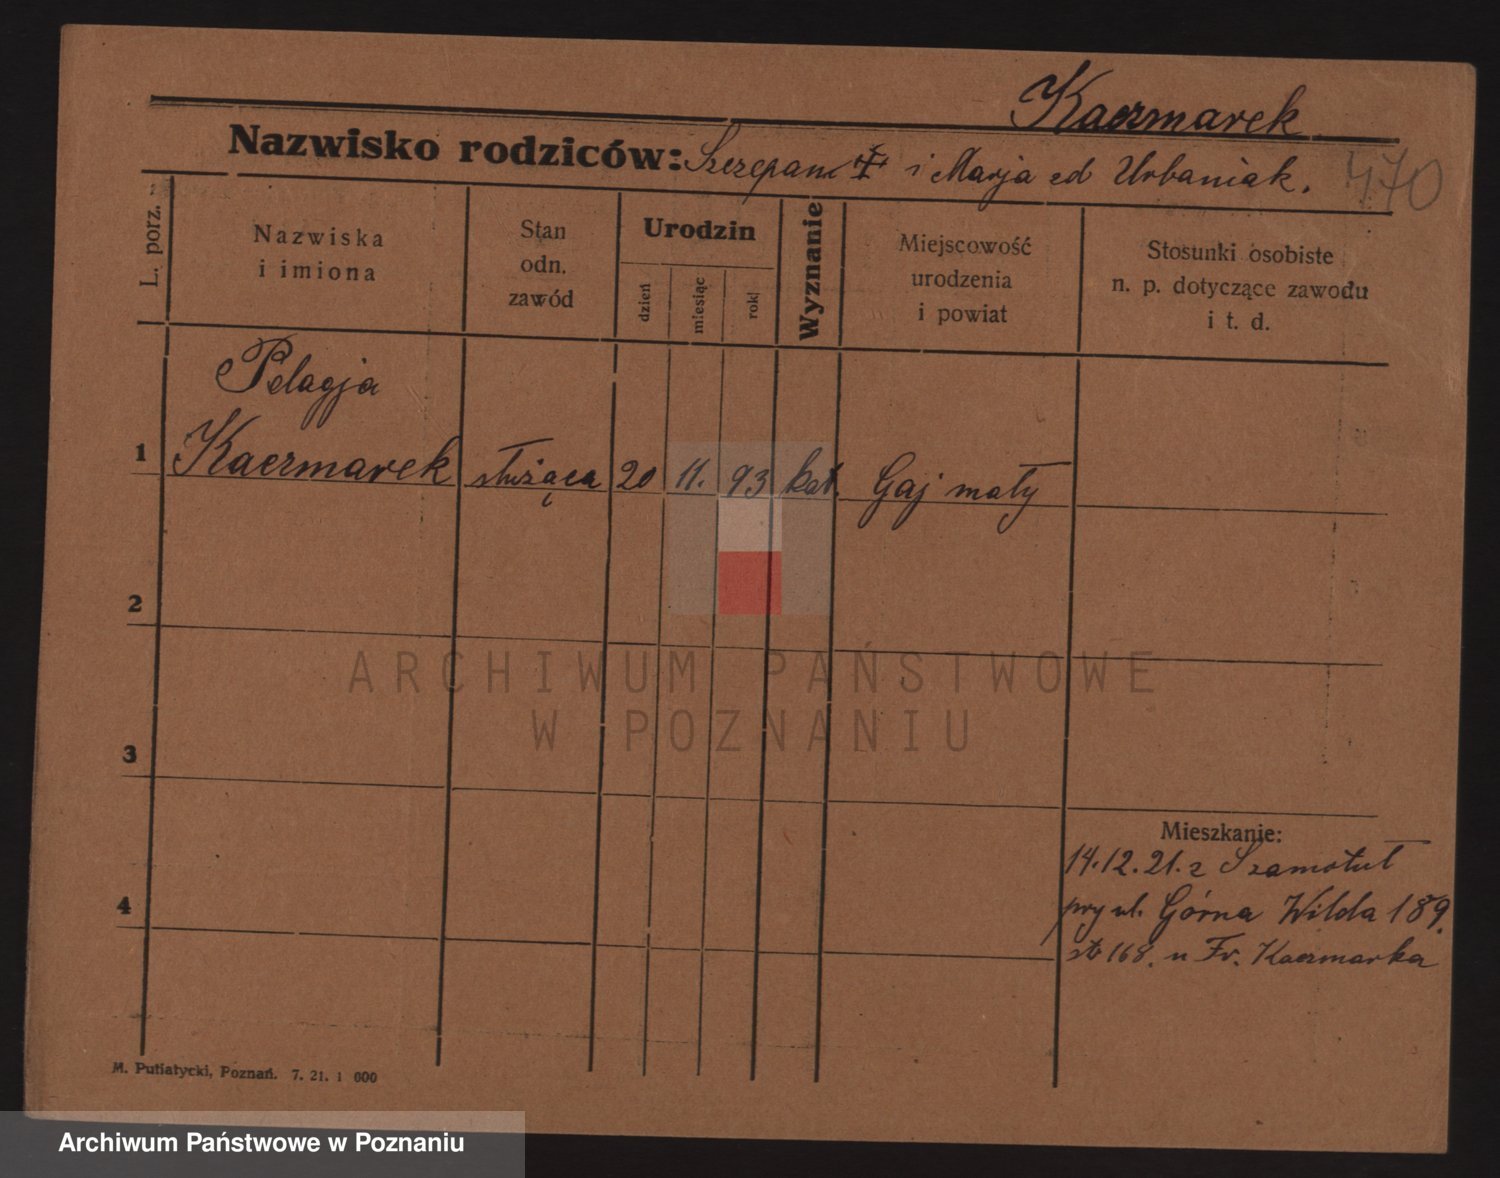 Kaczmarek
Nazwisko rodziców: Szczepan i Marja cd Urbaniak.
470
L. porz.
Nazwiska
i imiona
Stan
odn.
zawód
Urodzin
dzień
miesiąc
rok
Wyznanie
Miejscowość
urodzenia
i powiat
Stosunki osobiste
n. p. dotyczące zawodu
i t. d.
Pelagja
1 Kaczmarek służąca 20 11. 93 kat. Gaj mały
2
ARCHIWUM PAŃSTWOWE
W POZNANIU
3
Mieszkanie:
14.12.21. z Szamotuł
przy ul. Górna Wilda 189.
str 168. u Fr. Kaczmarka
4
M. Putiatycki, Poznań. 7. 21. 1 000
Archiwum Państwowe w Poznaniu